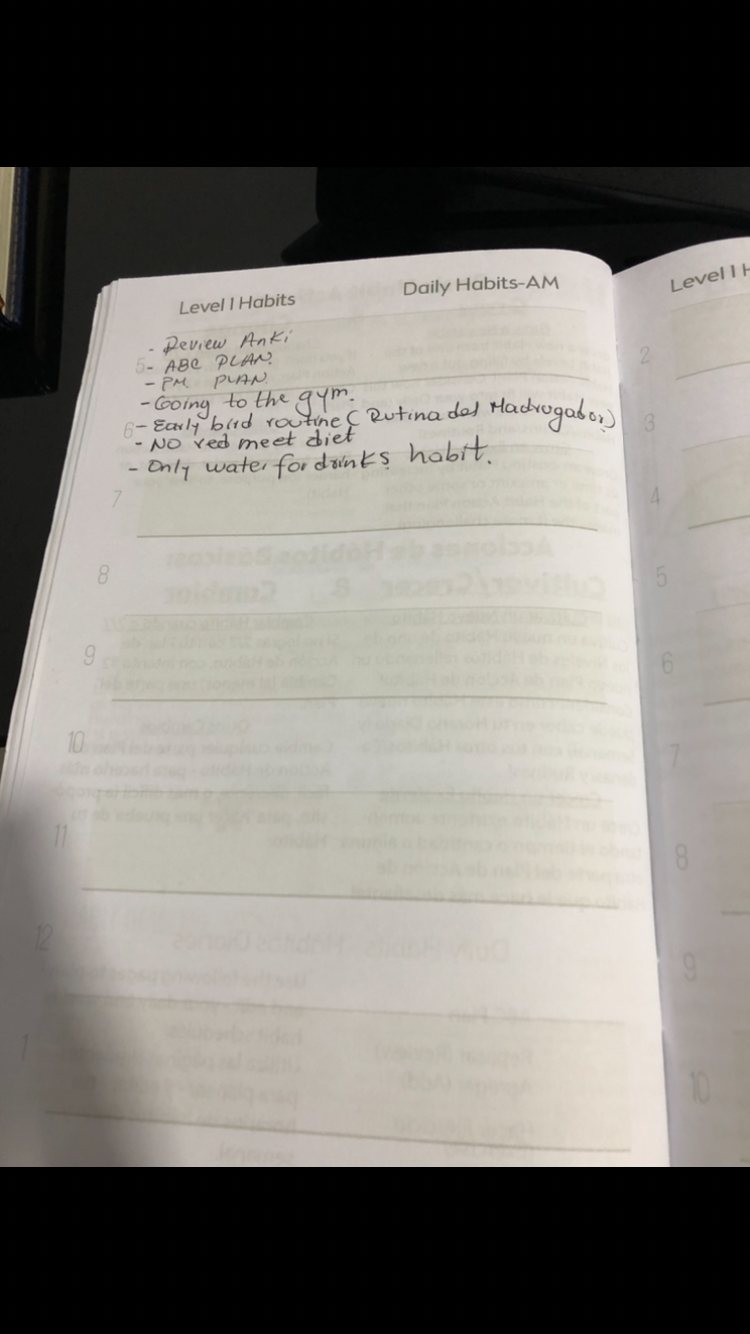 Level 1 Habits
Daily Habits-AM
Level 1 H
- Review Anki
5 - ABC PLAN.
- PM PLAN.
- Going to the gym.
6 - Early bird routine (Rutina del Madrugador)
- NO red meet diet
- Only water for drinks habit.
7
8
9
10
11
12
1
2
3
4
5
6
7
8
9
10